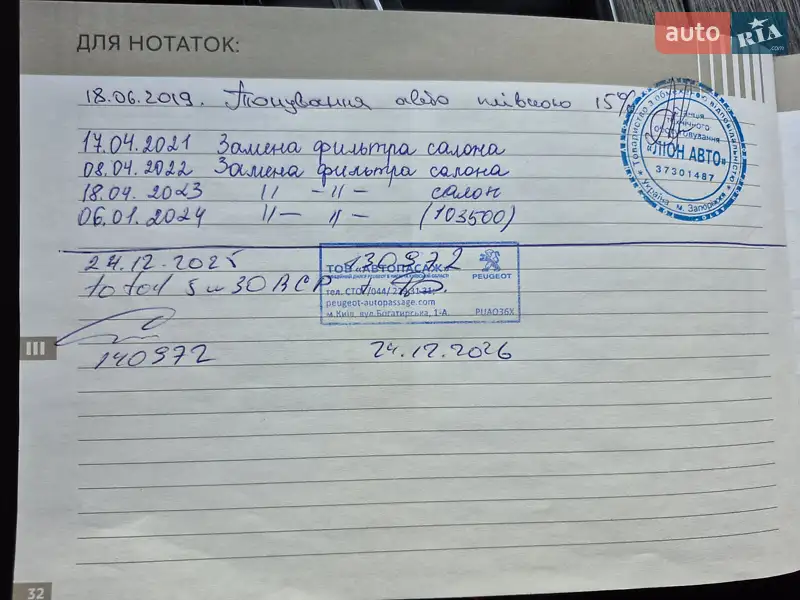 ДЛЯ НОТАТОК:
auto RIA .com
18.06.2019. Тонування авто плівкою 15%
17.04.2021 Замена фильтра салона
08.04.2022 Замена фильтра салона
18.04.2023 || – || – салон
06.01.2024 || – || – (103500)
Товариство з обмеженою відповідальністю
«ЛІОН АВТО»
37301487
Україна м. Запоріжжя
24.12.2025 130972
total 5w30 BCP
ТОВ «АВТОПАСАЖ»
PEUGEOT
peugeot-autopassage.com
м.Київ, вул.Богатирська, 1-А. PUA036X
140972 24.12.2026
III
32